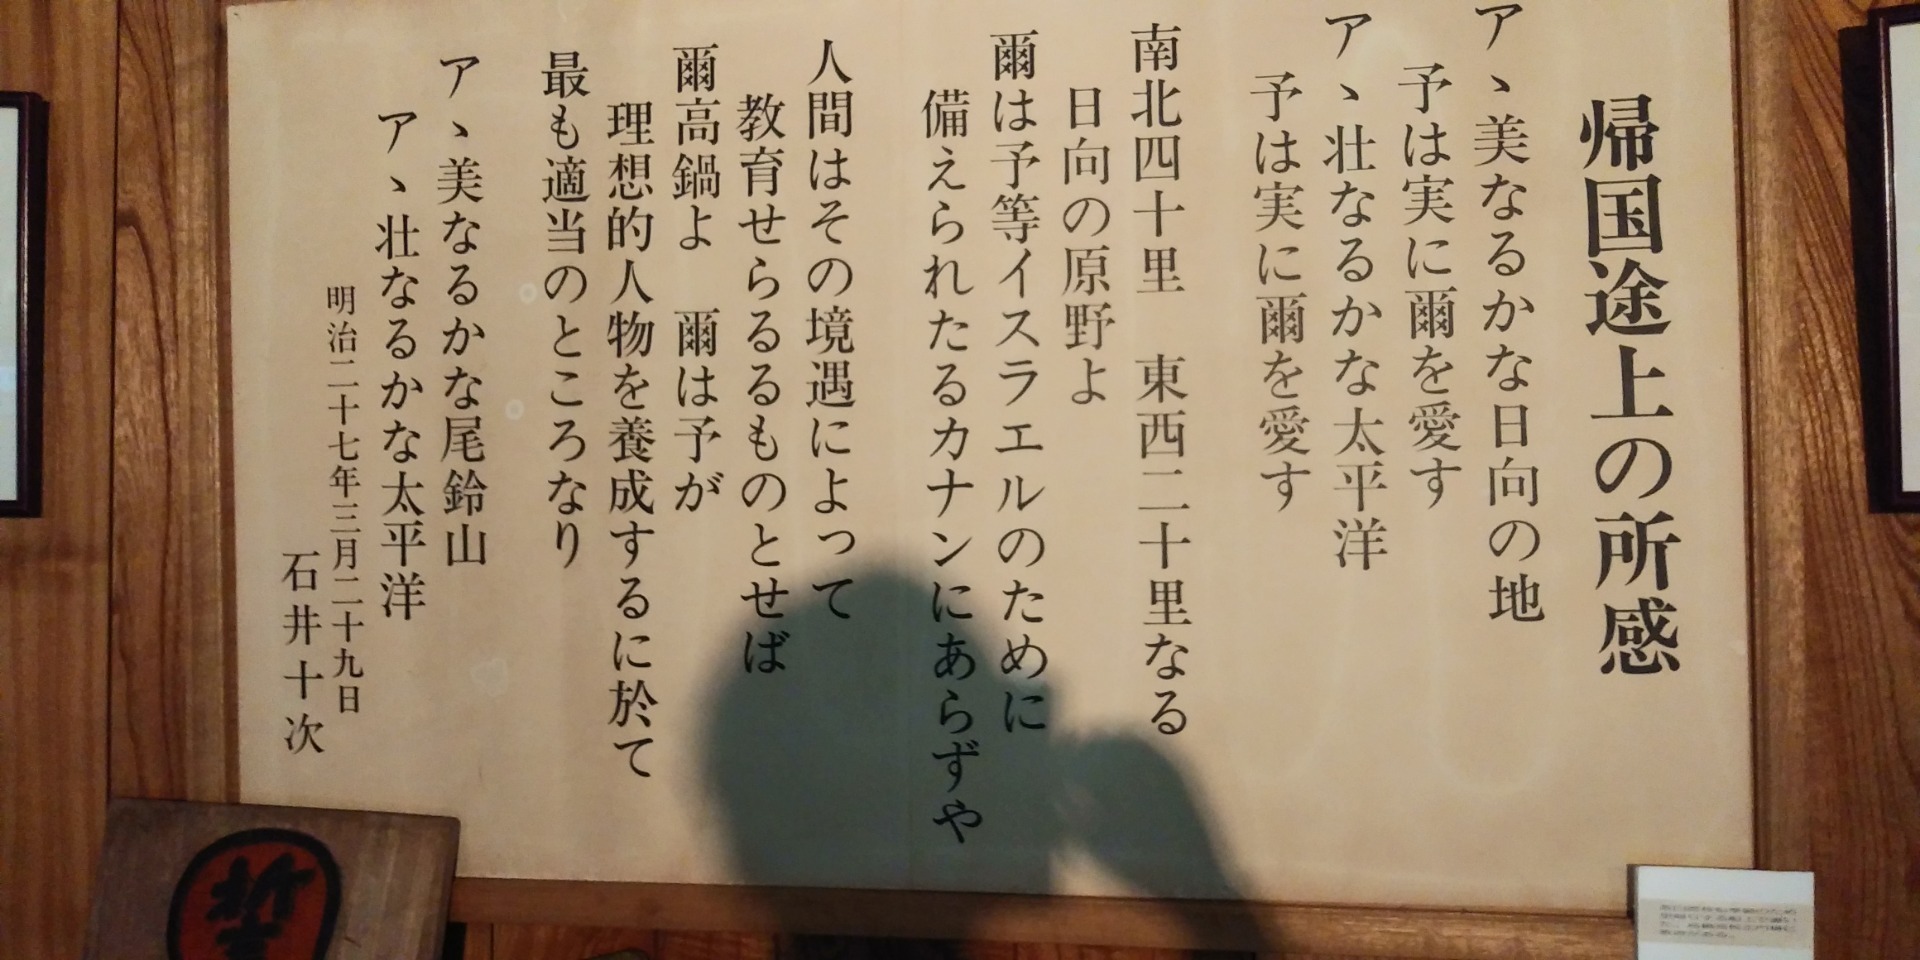 帰国途上の所感
アヽ美なるかな日向の地
予は実に爾を愛す
アヽ壮なるかな太平洋
予は実に爾を愛す
南北四十里　東西二十里なる
日向の原野よ
爾は予等イスラエルのために
備えられたるカナンにあらずや
人間はその境遇によって
教育せらるるものとせば
爾高鍋よ　爾は予が
理想的人物を養成するに於て
最も適当のところなり
アヽ美なるかな尾鈴山
アヽ壮なるかな太平洋
明治二十七年三月二十九日
石井十次